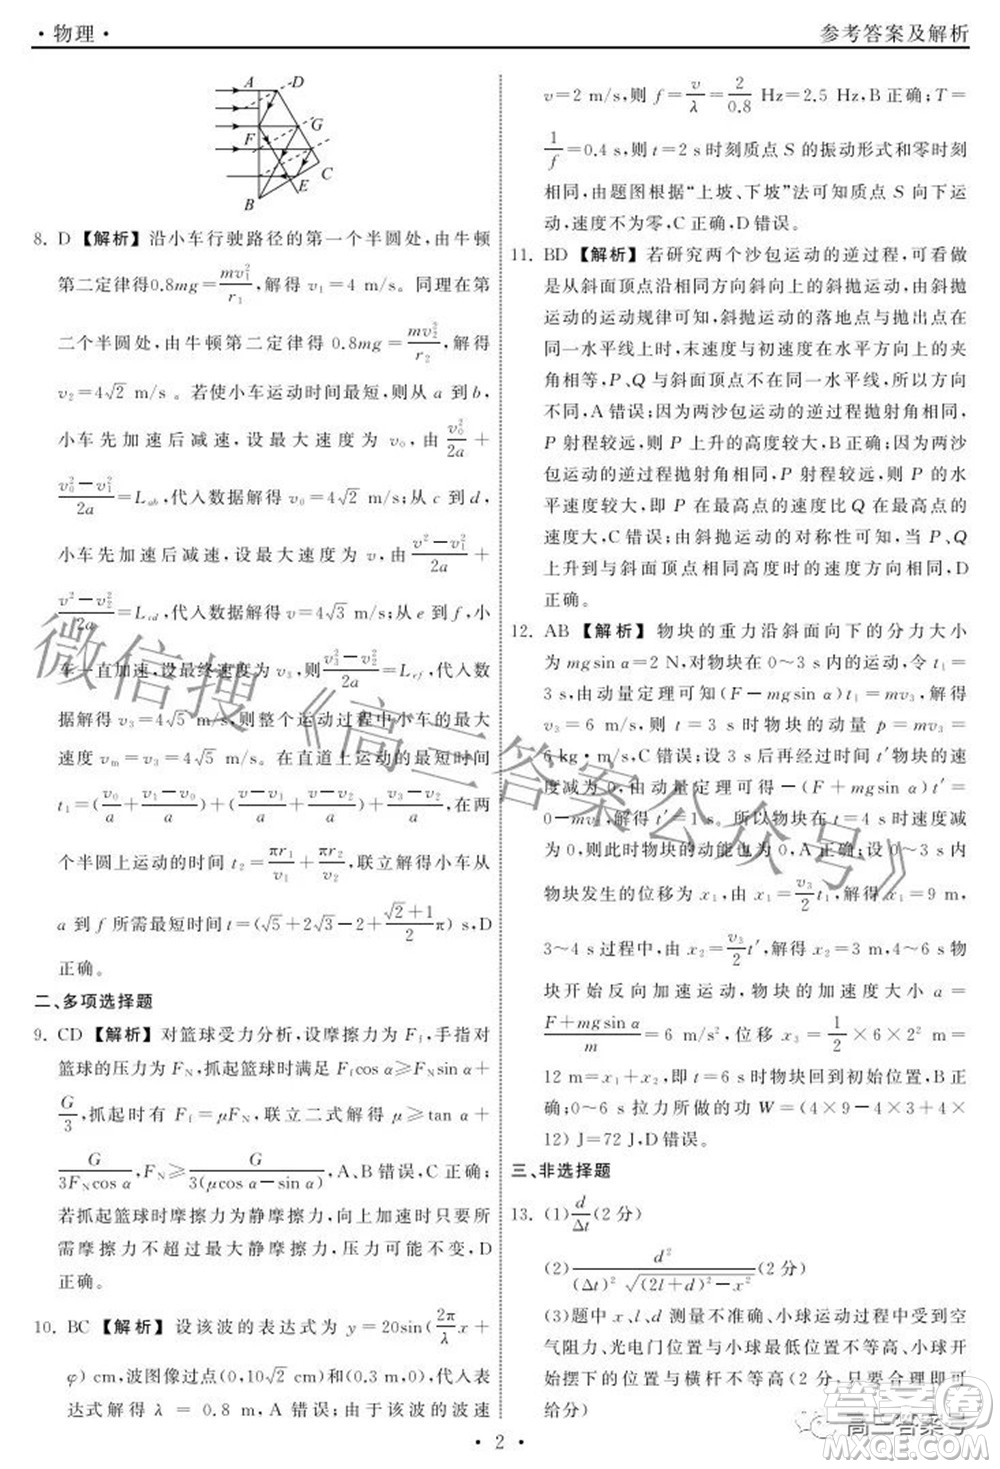 · 物理 ·
参考答案及解析
A D
G
F
C
E
B
8. D【解析】沿小车行驶路径的第一个半圆处,由牛顿
第二定律得0.8mg=mv₁²/r₁,解得 v₁=4 m/s。同理在第
二个半圆处,由牛顿第二定律得 0.8mg=mv₂²/r₂,解得
v₂=4√2 m/s。若使小车运动时间最短,则从 a 到 b,
小车先加速后减速,设最大速度为 v₀,由 v₀²/2a +
(v₀²-v₁²)/2a=L_ab,代入数据解得 v₀=4√2 m/s;从 c 到 d,
小车先加速后减速,设最大速度为 v,由 (v²-v₁²)/2a +
(v²-v₂²)/2a=L_cd,代入数据解得 v=4√3 m/s;从 e 到 f,小
车一直加速,设最终速度为 v₃,则(v₃²-v₂²)/2a=L_ef,代入数
据解得 v₃=4√5 m/s,则整个过程中小车的最大速度
v_m=v₃=4√5 m/s。在直道上运动的时间
t₁=(v₀/a+(v₀-v₁)/a)+((v-v₁)/a+(v-v₂)/a)+(v₃-v₂)/a,在两
个半圆上运动的时间 t₂=πr₁/v₁+πr₂/v₂,联立解得小车从
a 到 f 所需最短时间 t=(√5+2√3-2+(√2+1)/2 π) s,D
正确。
二、多项选择题
9. CD【解析】对篮球受力分析,设摩擦力为 F_f,手指对
篮球的压力为 F_N,抓起篮球时满足 F_f cos α≥F_N sin α+
G/3,抓起时有 F_f=μF_N,联立二式解得 μ≥tan α+
G/(3F_N cos α),F_N≥G/(3(μcos α-sin α)),A、B 错误,C 正确;
若抓起篮球时摩擦力为静摩擦力,向上加速时只要所
需摩擦力不超过最大静摩擦力,压力可能不变,D
正确。
10. BC【解析】设该波的表达式为 y=20sin(2π/λ x+
φ) cm,波图像过点(0,10√2 cm)和(0.3 m,0),代入表
达式解得 λ = 0.8 m,A 错误;由于该波的波速
v=2 m/s,则 f=v/λ=2/0.8 Hz=2.5 Hz,B 正确;T=
1/f=0.4 s,则 t=2 s时刻质点 S 的振动形式和零时刻
相同,由题图根据“上坡、下坡”法可知质点 S 向下运
动,速度不为零,C 正确,D 错误。
11. BD【解析】若研究两个沙包运动的逆过程,可看做
是从斜面顶点沿相同方向斜向上的斜抛运动,由斜抛
运动的运动规律可知,斜抛运动的落地点与抛出点在
同一水平线上时,末速度与初速度在水平方向上的夹
角相同,P、Q 与斜面顶点不在同一水平线,所以方向
不同,A 错误;因为两沙包运动的逆过程抛射角相同,
P 射程较远,则 P 上升的高度较大,B 正确;因为两沙
包运动的逆过程抛射角相同,P 射程较远,P 的水
平速度较大,即 P 在最高点的速度比 Q 在最高点的
速度大,C 错误;由斜抛运动的对称性可知,当 P、Q
上升到与斜面顶点相同高度时的速度方向相同,D
正确。
12. AB【解析】物块的重力沿斜面向下的分力大小
为 mgsin α=2 N,对物块在 0～3 s 内的运动,令
t₁=3 s,由动量定理可知(F-mgsin α)t₁=mv₃,解得
v₃=6 m/s,则 t=3 s 时物块的动量 p=mv₃=
6 kg·m/s,C 错误;设 3 s后再经过时间 t′物块的速
度减为 0,由动量定理可得 -(F+mgsin α)t′=
0-mv₃,解得 t′=1 s。所以物块在 t=4 s时速度减
为 0,则此时物块的动能也为 0,A 正确;设 0～3 s内
物块发生的位移为 x₁,由 x₁=v₃/2 t₁,解得 x₁=9 m,
3～4 s 过程中,由 x₂=v₃/2 t′,解得 x₂=3 m,4～6 s物
块开始反向加速运动,物块的加速度大小 a=
(F+mgsin α)/m=6 m/s²,位移 x₃=1/2×6×2² m=
12 m=x₁+x₂,即 t=6 s时物块回到初始位置,B 正
确;0～6 s 拉力所做的功 W=(4×9-4×3+4×
12) J=72 J,D 错误。
三、非选择题
13. (1)d/Δt(2 分)
(2)d²/((Δt)²√((2l+d)²-x²))(2 分)
(3)题中 x、l、d 测量不准确、小球运动过程中受到空
气阻力、光电门位置与小球最低点位置不等高、小球
释放位置与横杆不等高(2 分,只要合理即可
给分)
· 2 ·
微信搜《高三答案公众号》
高三答案号
答案圈
MXQE.COM